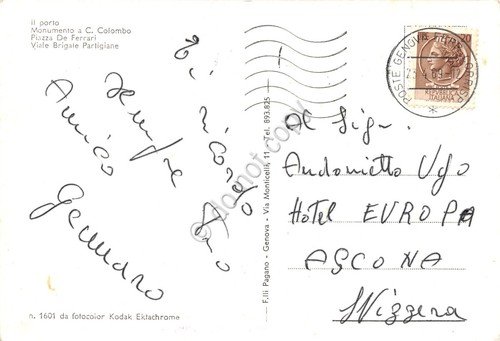 il porto
Monumento a C. Colombo
Piazza De Ferrari
Viale Brigate Partigiane
Ti ricordo
sempre tuo
Amico
Gennaro
n. 1601 da fotocolor Kodak Ektachrome
F.lli Pagano - Genova - Via Monticelli, 11 - Tel. 893.825
POSTE GENOVA FERR
20
REPUBBLICA
ITALIANA
Al Sig.
Andometto Ugo
Hotel EUROPA
ASCONA
Svizzera
do not copy